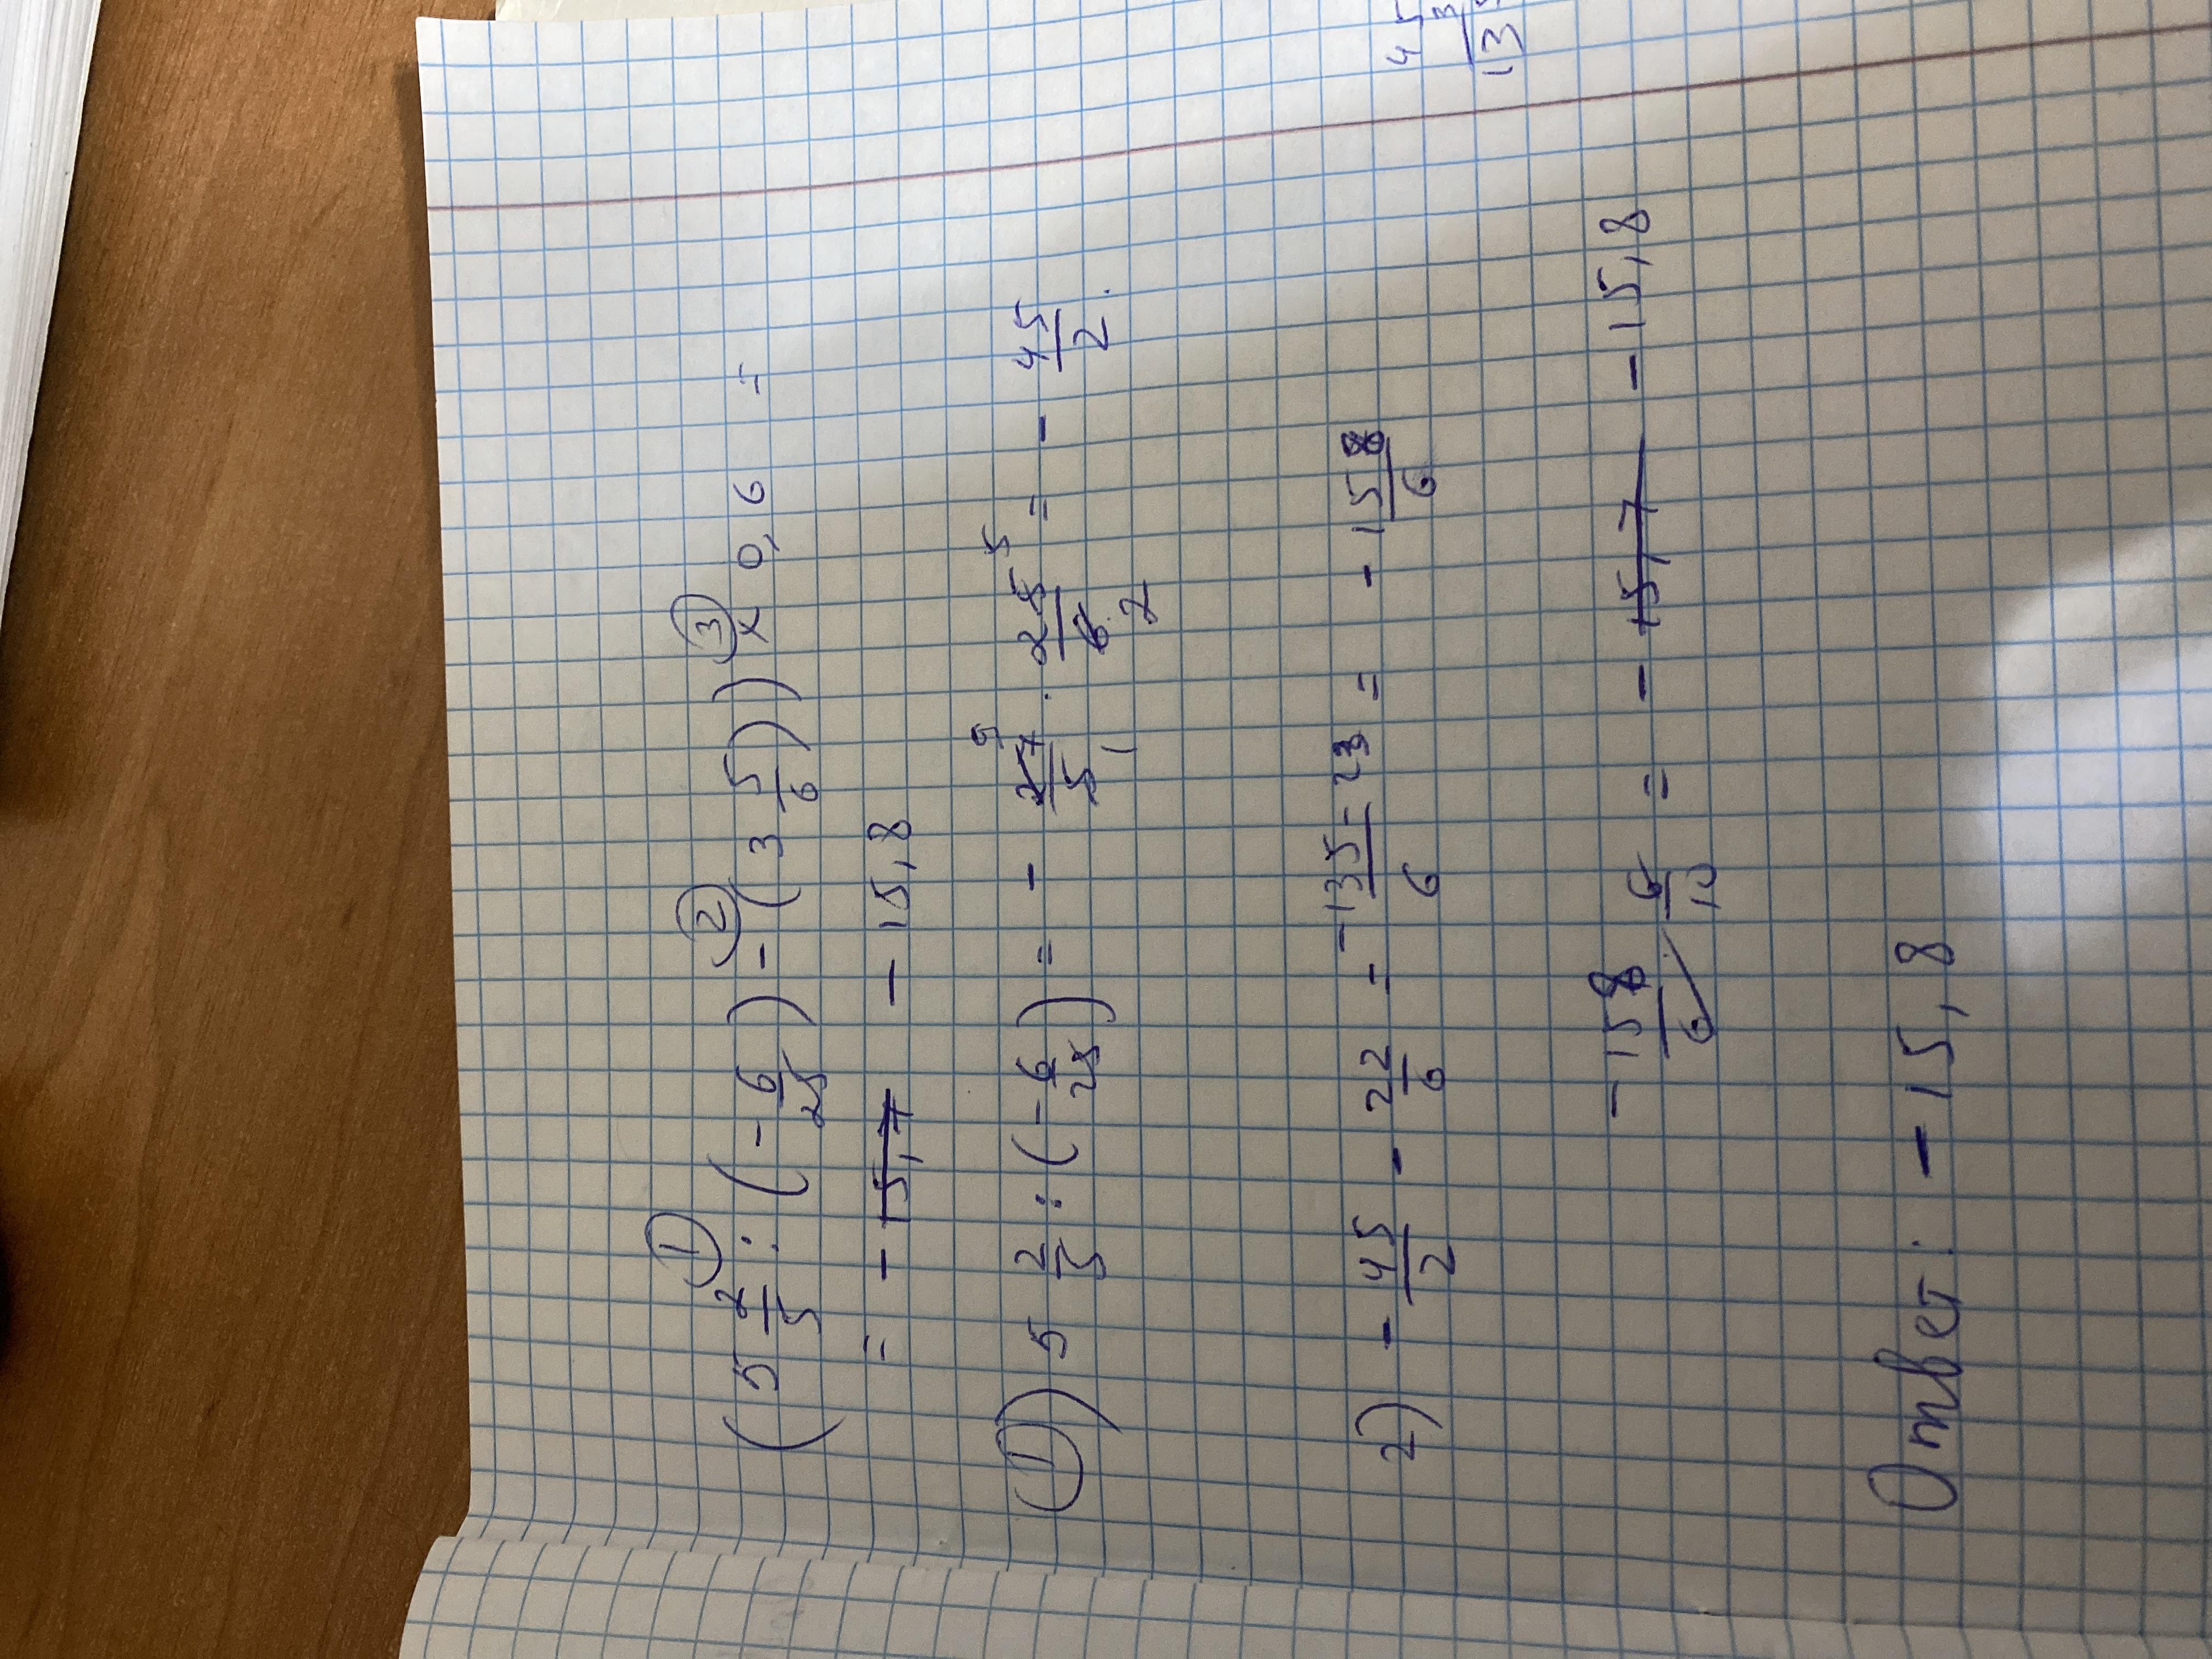 ① ② ③
(5 2/5 : (- 6/25) - (3 5/6)) × 0,6 =
= - 15,7 - 15,8
①) 5 2/5 : (- 6/25) = - 27/5 · 25/6 = - 45/2.
9 5
1 2
2) - 45/2 - 22/6 = - 135 - 23 / 6 = - 158/6
- 158/6 6/10 = - 15,7 - 15,8
Ответ: - 15,8
45
13